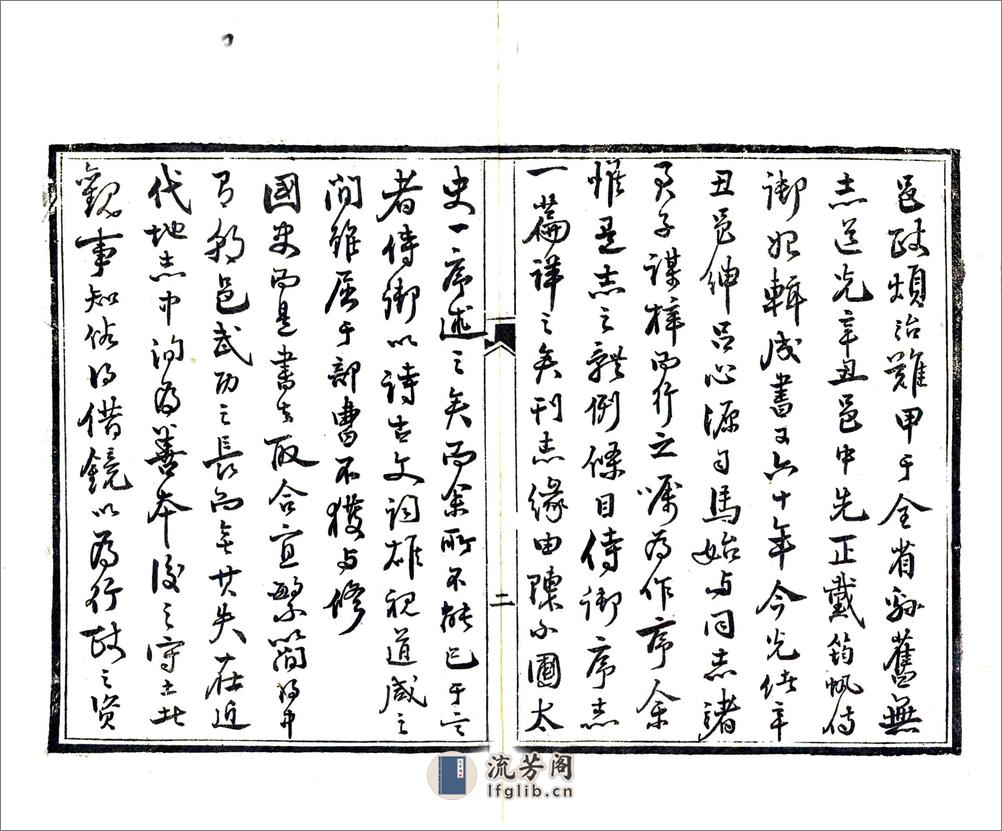 邑政煩治難甲于全省縣舊無
志道光辛丑邑中先正戴筠帆侍
御始輯成書又六十年今光緒辛
丑邑紳呂心源司馬始与同志諸
君子謀梓而行之嘱為作序余
惟是志之體例條目侍御序志
一篇詳之矣刊志緣由陳小圃太
史一序述之矣而余所不能已于言
者侍御以詩古文詞雄視道咸之
間雖居于部曹不獲与修
國史而是書去取合宜繁簡得中
有朝邑武功之長而無其失在近
代地志中洵為善本後之守土此
觀事知俗得借鏡以為行政之資
二
流芳阁
lfglib.cn